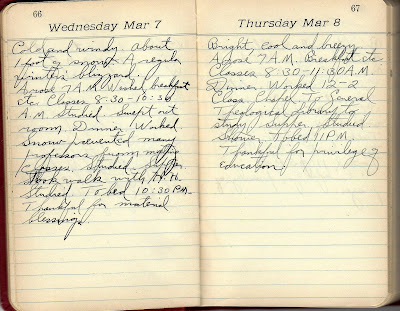 66
Wednesday Mar 7
Cold and windy. About
1 foot of snow. A regular
winter's blizzard.
Arose 7 A.M. Worked breakfast
etc. Classes 8-30-10:30
A.M. Studied. Swept out
room. Dinner. Worked
Snow prevented many
professors from
classes. Studied. Supper.
Took walk with
Studied. To bed 10:30 P.M.
Thankful for material
blessings.
67
Thursday Mar 8
Bright, cool and breezy
Arose 7 A.M. Breakfast etc.
Classes 8-30-11:30 A.M.
Dinner. Worked 12-2
Class. Chapel. To General
Theological library to
study. Supper. Studied
Shower. To bed 11 P.M.
Thankful for privilege of
education.